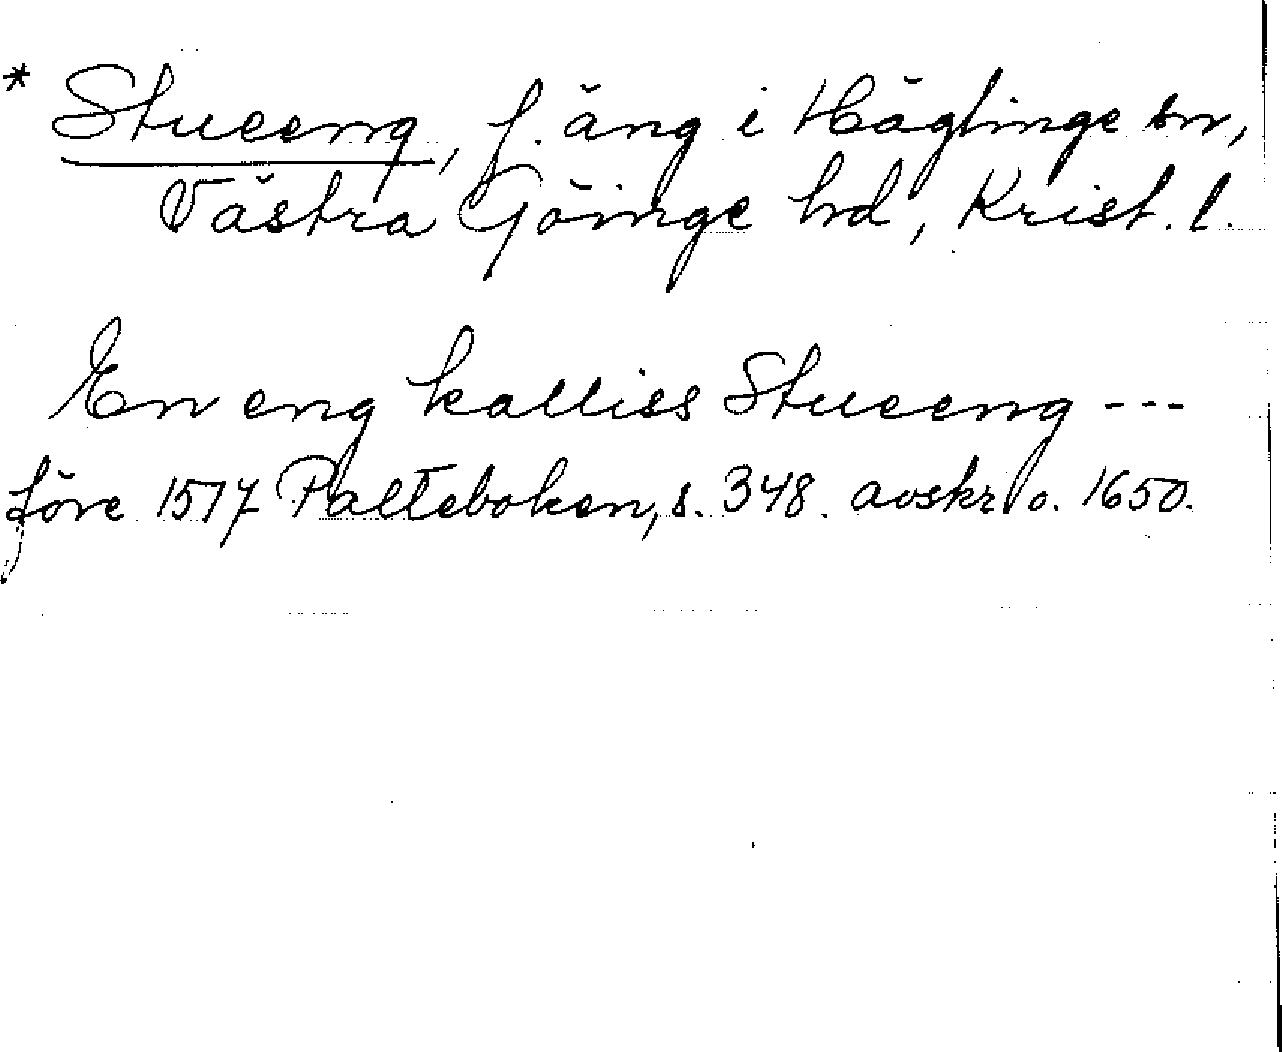 * Stueeng, f. äng i Häglinge sn,
Västra Göinge hd, Krist. l.
En eng kalliss Stueeng ---
före 1517 Palteboken, s. 348. avskr o. 1650.